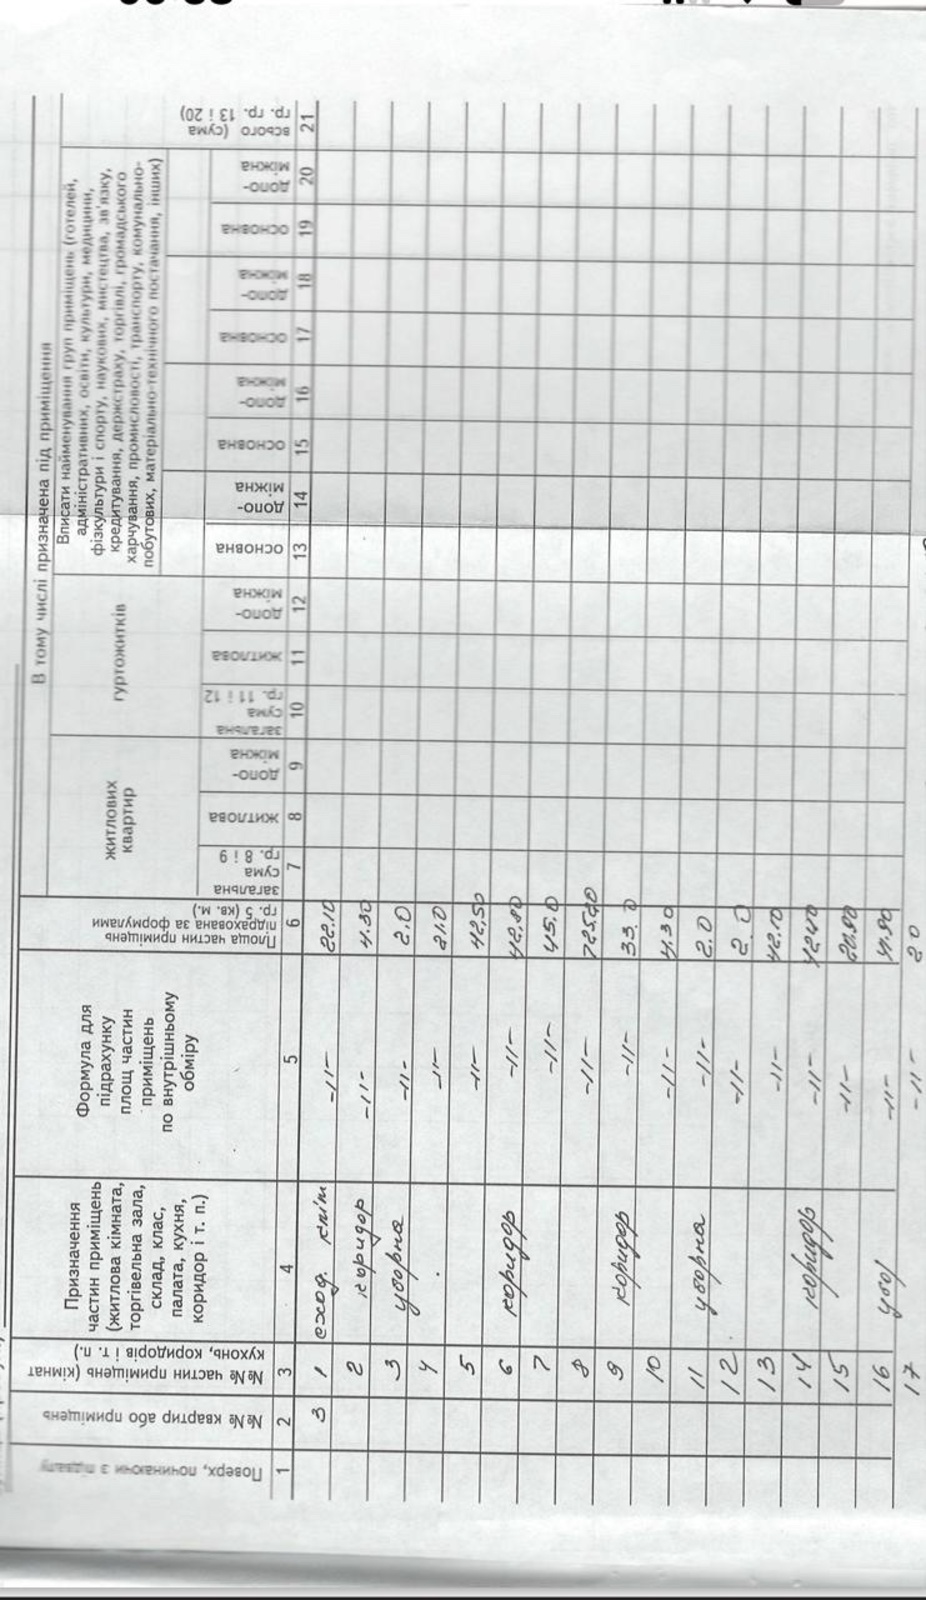 В тому числі призначена під приміщення
Поверх, починаючи з підвалу
№№ квартир або приміщень
№№ частин приміщень (кімнат
кухонь, коридорів і т. п.)
Призначення
частин приміщень
(житлова кімната,
торгівельна зала,
склад, клас,
палата, кухня,
коридор і т. п.)
Формула для
підрахунку
площ частин
приміщень
по внутрішньому
обміру
Площа частин приміщень
підрахована за формулами
гр. 5 (кв. м.)
житлових
квартир
загальна
сума
гр. 8 і 9
житлова
допо-
міжна
гуртожитків
загальна
сума
гр. 11 і 12
житлова
допо-
міжна
Вписати найменування груп приміщень (готелей,
адміністративних, освіти, культури, медицини,
фізкультури і спорту, наукових, мистецтва, зв'язку,
кредитування, держстраху, торгівлі, громадського
харчування, промисловості, транспорту, комунально-
побутових, матеріально-технічного постачання, інших)
основна
допо-
міжна
основна
допо-
міжна
основна
допо-
міжна
основна
допо-
міжна
всього (сума
гр. гр. 13 і 20)
1 2 3 4 5 6 7 8 9 10 11 12 13 14 15 16 17 18 19 20 21
3 1 сход. кліт -11- 22.10
2 коридор -11- 4.30
3 уборна -11- 2.0
4 -11- 21.0
5 -11- 42.50
6 коридор -11- 42.80
7 -11- 45.0
8 -11-
9 коридор -11- 33.0
10 -11- 4.30
11 уборна -11- 2.0
12 -11- 2.0
13 -11- 42.10
14 коридор -11-
15 -11-
16 -11-
17 -11- 2.0